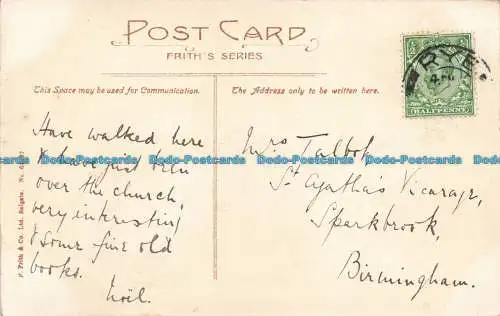 POST CARD
FRITH'S SERIES
This Space may be used for Communication.
The Address only to be written here.
HALFPENNY
RYE
Have walked here
& have just been
over the church,
very interesting
& some fine old
books.
Noël.
Mrs Talbot
St Agatha's Vicarage,
Sparkbrook,
Birmingham.
F. Frith & Co. Ltd. Reigate.
Postcards Postcards Postcards Postcards Postcards Postcards Postcards